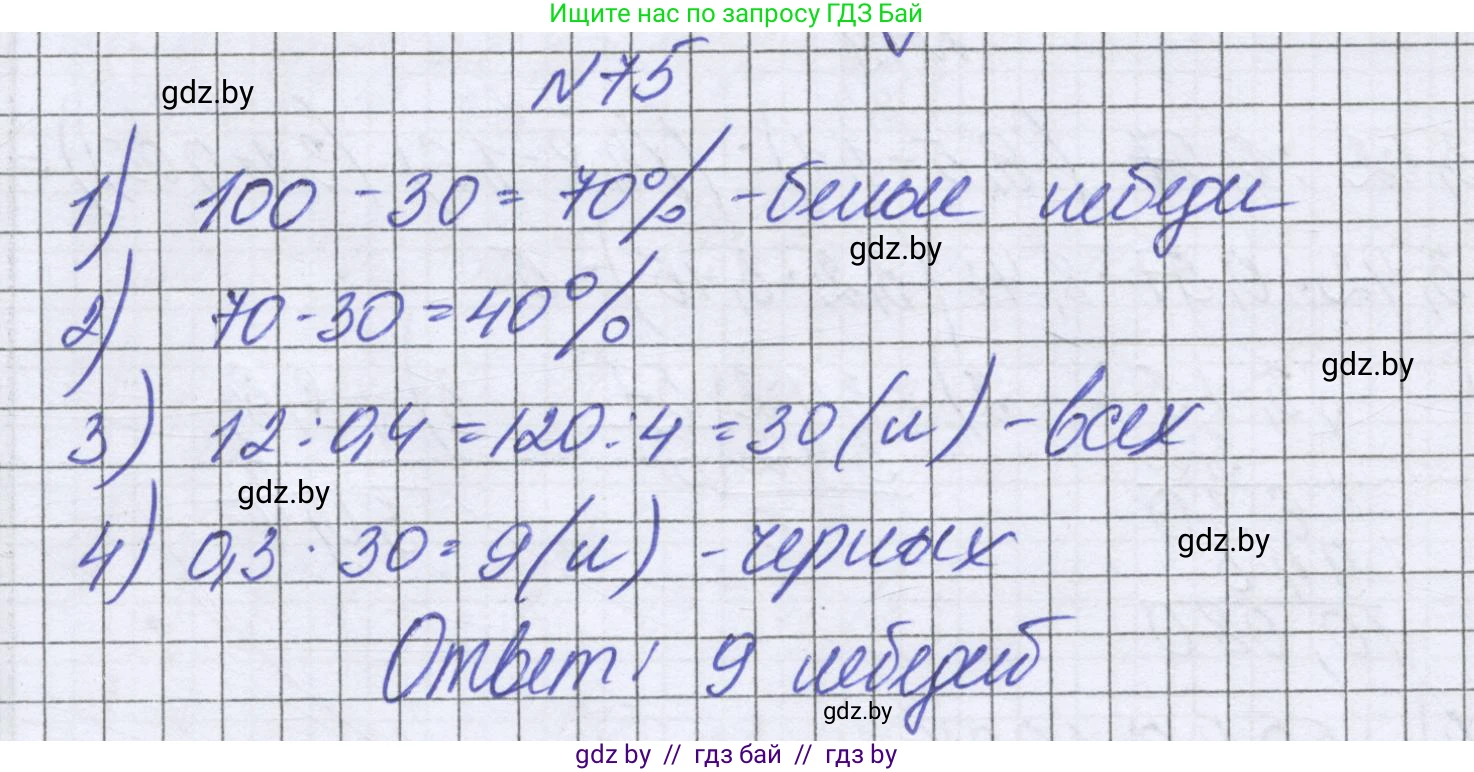 Ищите нас по запросу ГДЗ Бай
N75
gdz.by
1) 100 - 30 = 70% - белые лебеди
gdz.by
2) 70 - 30 = 40%
gdz.by
3) 12 : 0,4 = 120 : 4 = 30 (л) - всех
gdz.by
4) 0,3 · 30 = 9 (л) - черных
gdz.by
Ответ: 9 лебедей
gdz.by
gdz by // гдз бай // гдз by